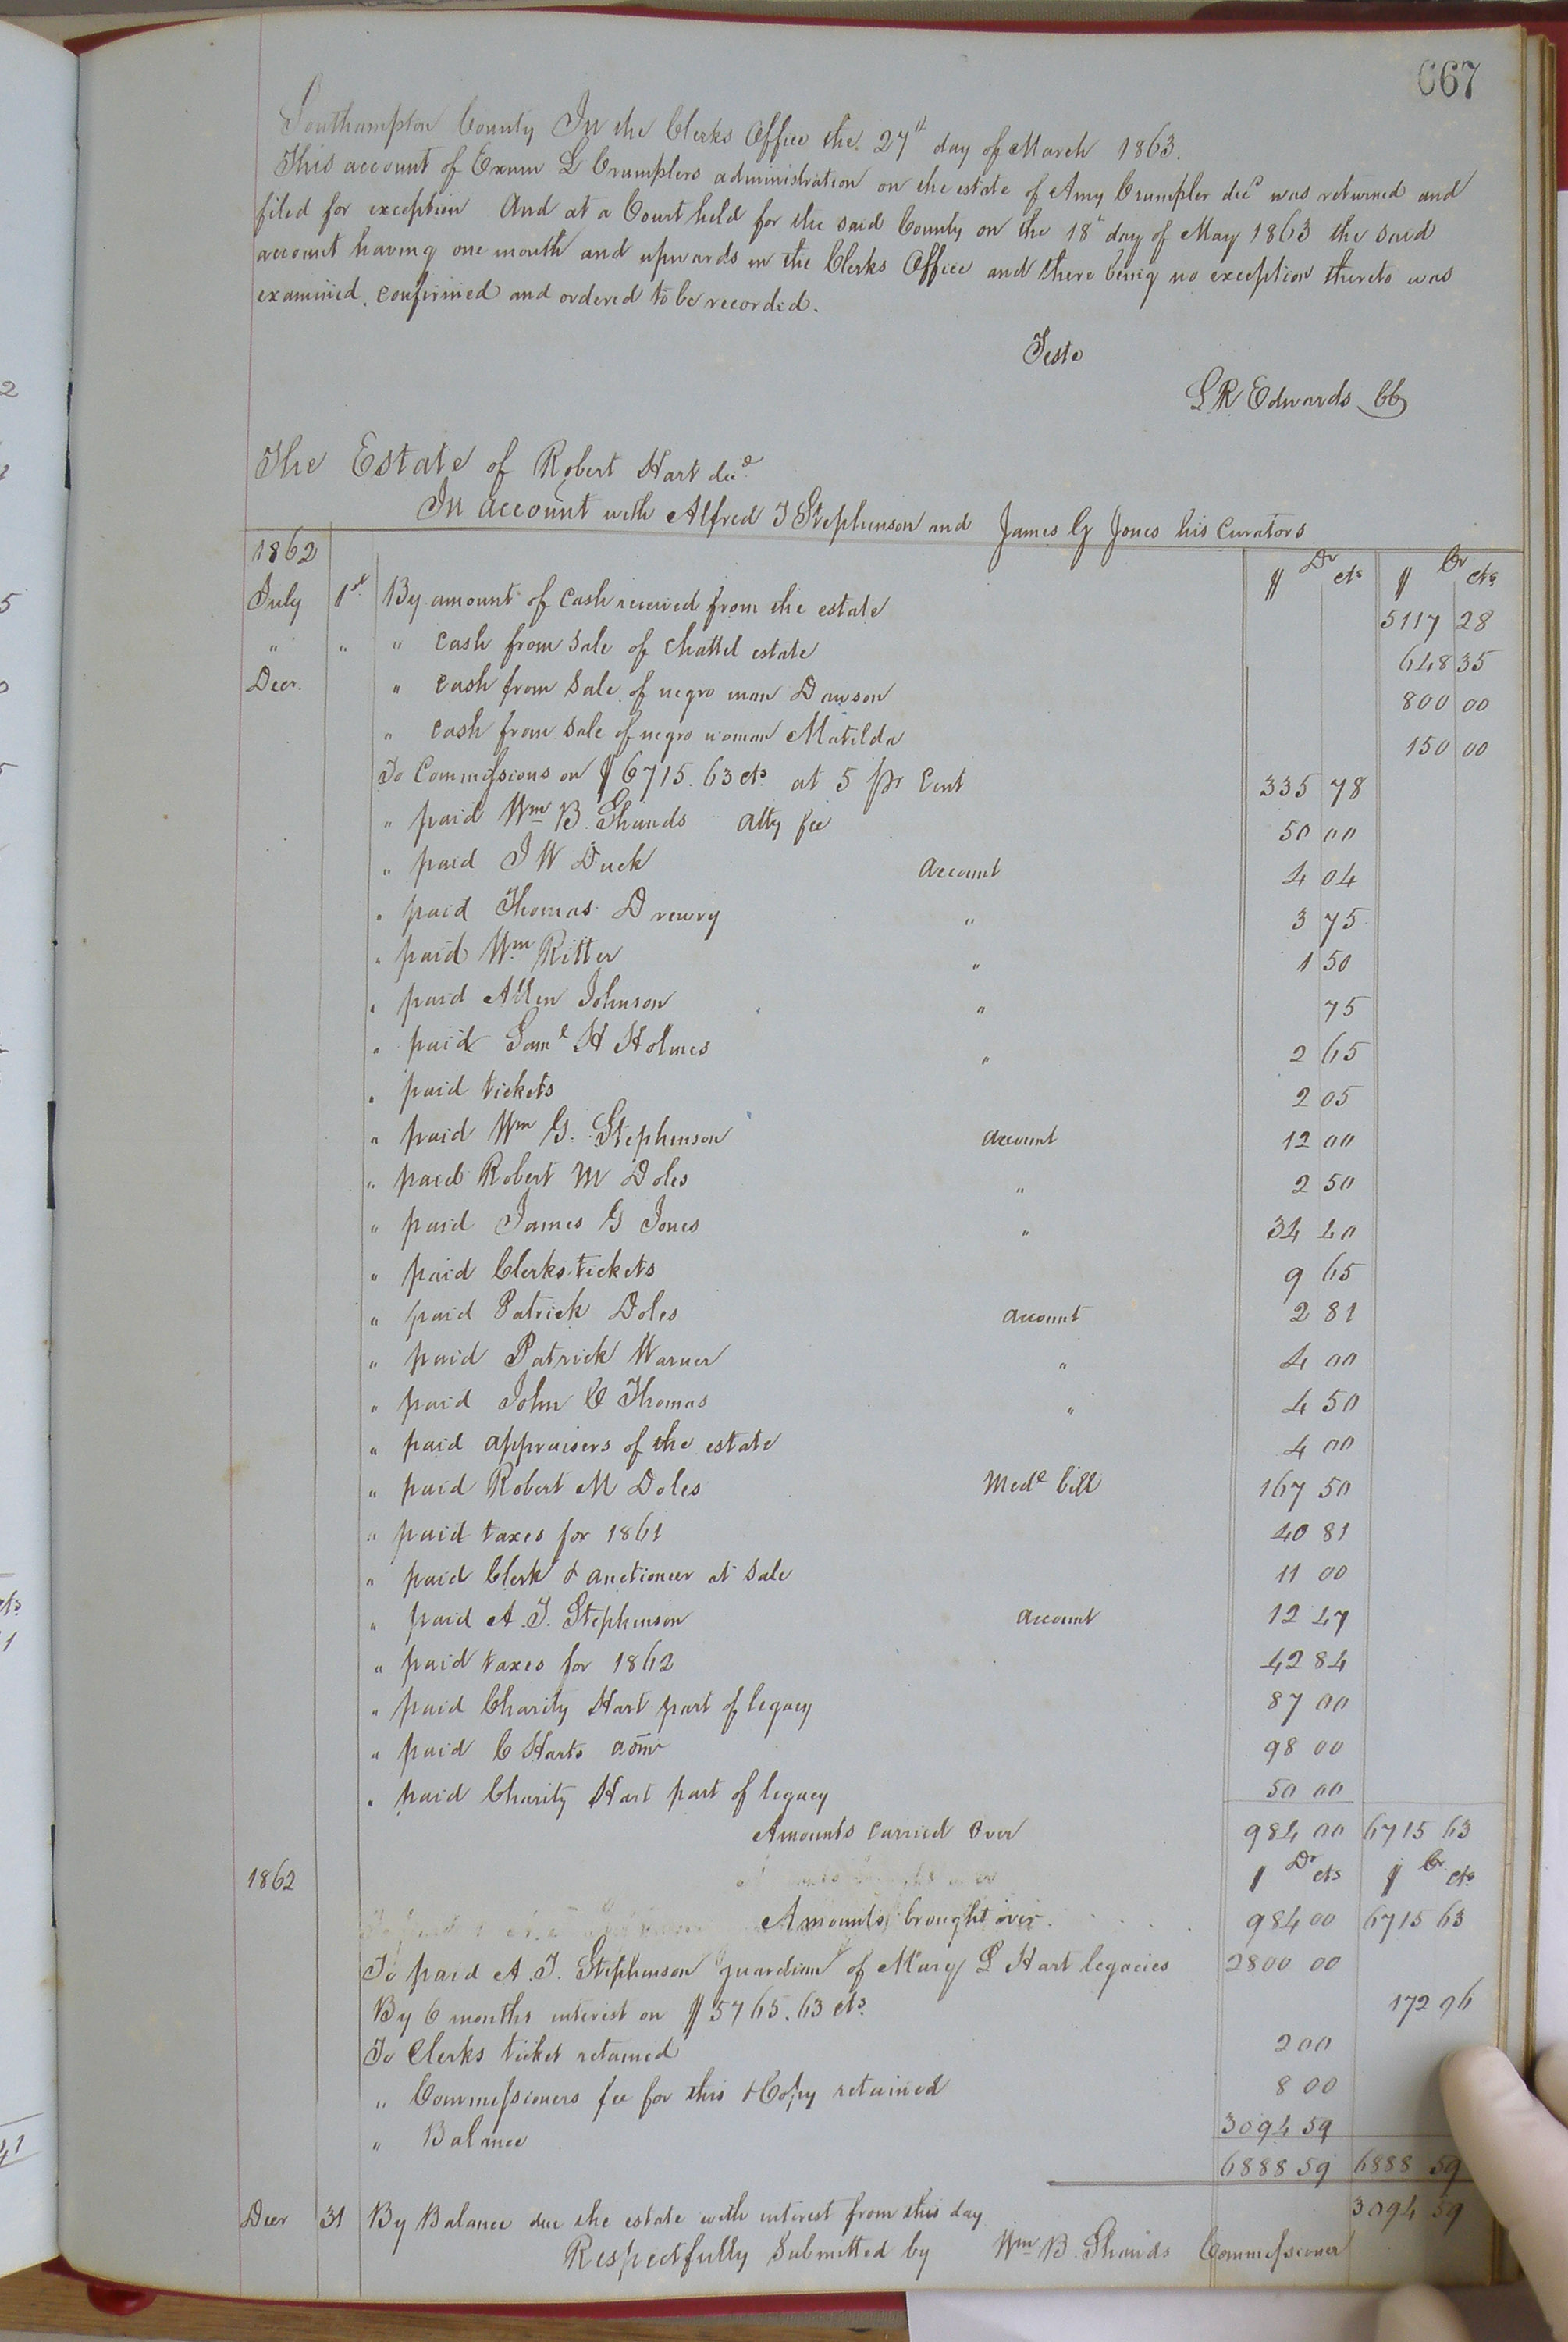 667
Southampton County In the Clerks Office the 27th day of March 1863.
This account of Exum L Crumplers administration on the estate of Amy Crumpler decd was returned and
filed for exception And at a Court held for the said County on the 18th day of May 1863 the said
account having one month and upwards in the Clerks Office and there being no exception thereto was
examined, confirmed and ordered to be recorded.
Teste
L R Edwards CC
The Estate of Robert Hart decd
In account with Alfred J Stephenson and James G Jones his Curators
1862 $ Dr cts $ Cr cts
July 1st By amount of cash received from the estate 5117 28
" " " cash from sale of chattel estate 648 35
Decr. " cash from sale of negro man Dawson 800 00
" cash from sale of negro woman Matilda 150 00
To Commissions on $6715.63 cts at 5 pr Cent 335 78
" paid Wm B. Shands atty fee 50 00
" paid J W Duck account 4 04
" paid Thomas Drewry " 3 75
" paid Wm Ritter " 1 50
" paid Allen Johnson " 75
" paid Saml H Holmes " 2 65
" paid tickets 2 05
" paid Wm G. Stephenson account 12 00
" paid Robert M Doles " 2 50
" paid James G Jones " 34 40
" paid Clerks tickets 9 65
" paid Patrick Doles account 2 81
" paid Patrick Warner " 4 00
" paid John C Thomas " 4 50
" paid appraisers of the estate 4 00
" paid Robert M Doles Medl bill 167 50
" paid taxes for 1861 40 81
" paid Clerk & auctioneer at sale 11 00
" paid A. J. Stephenson account 12 47
" paid taxes for 1862 42 84
" paid Charity Hart part of legacy 87 00
" paid C Harts admr 98 00
" paid Charity Hart part of legacy 50 00
Amounts carried over 984 00 6715 63
1862 $ Dr cts $ Cr cts
Amounts brought over 984 00 6715 63
To paid A. J. Stephenson guardian of Mary L Hart legacies 2800 00
By 6 months interest on $5765.63 cts. 172 96
To Clerks ticket retained 2 00
" Commissioners fee for this & Copy retained 8 00
" Balance 3094 59
6888 59 6888 59
Decr 31 By Balance due the estate with interest from this day 3094 59
Respectfully Submitted by Wm B. Shands Commissioner